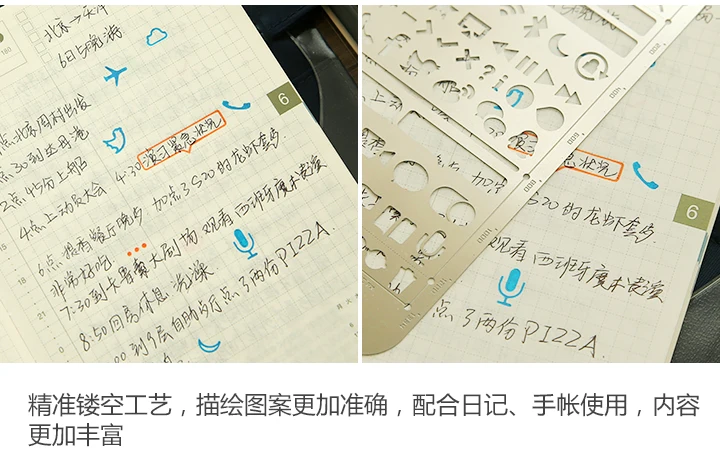 北京→天津
6日3晚游
点:北京周村出发
点:30到达母港
2点45分上船
4点上动员大会
4:30 演习紧急状况
6点 提香餐厅晚步 加点了$20的龙虾套步.
非常好吃
7:30到卡鲁赛大剧场 观看西班牙魔术表演
8:50回房休息 洗澡
00 到9层自助餐厅点了两份PIZZA.
6
180
18
21
0
急状况
加点
$20的龙虾套步.
观看西班牙魔术表演
点了两份PIZZA.
6
精准镂空工艺，描绘图案更加准确，配合日记、手帐使用，内容
更加丰富